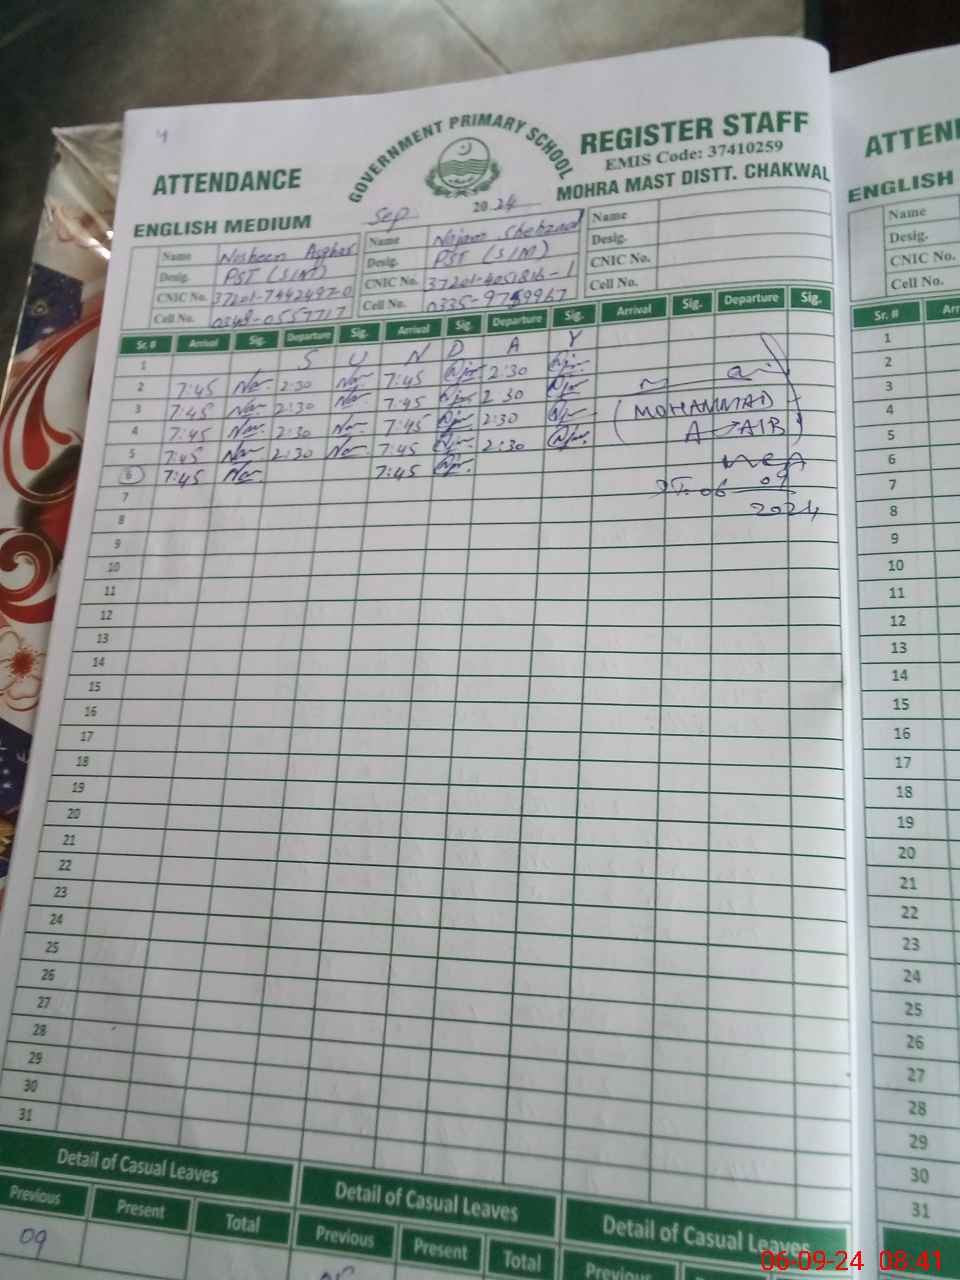 4
GOVERNMENT PRIMARY SCHOOL
ATTENDANCE
REGISTER STAFF
EMIS Code: 37410259
MOHRA MAST DISTT. CHAKWAL
ENGLISH MEDIUM
Sep 2024
Name Nosheen Asghar Name Najam Shehzad Name
Desig. PST (SIM) Desig. PST (SIM) Desig.
CNIC No. 37201-7442497-0 CNIC No. CNIC No.
Cell No. Cell No. Cell No.
Sr. # Arrival Sig. Departure Sig. Arrival Sig. Departure Sig. Arrival Sig. Departure Sig.
1 S U N D A Y
2 7:45 2:30 7:45 2:30
3 7:45 2:30 7:45 2:30
4 7:45 2:30 7:45 2:30
5 7:45 2:30 7:45 2:30
6 7:45 7:45
MOHAMMAD
06 09
2024
7
8
9
10
11
12
13
14
15
16
17
18
19
20
21
22
23
24
25
26
27
28
29
30
31
Detail of Casual Leaves Detail of Casual Leaves Detail of Casual Leaves
Previous Present Total Previous Present Total Previous
09
ATTEN
ENGLISH
Name
Desig.
CNIC No.
Cell No.
Sr. # Arr
1
2
3
4
5
6
7
8
9
10
11
12
13
14
15
16
17
18
19
20
21
22
23
24
25
26
27
28
29
30
31
06-09-24 08:41